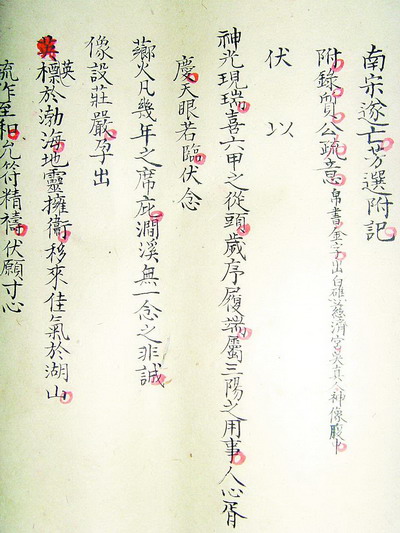 南宋遂亡芳選附記
附錄貢公疏意帛書金字出白礁慈濟宮吳真人神像腹中
伏以
神光現瑞喜六甲之從頭歲序履端屬三陽之用事人心胥
慶天眼若臨伏念
薌火凡幾年之席庇澗溪無一念之非誠
像設莊嚴孕出
英標於渤海地靈擁衛移來佳氣於湖山
流祚至和允符精禱伏願寸心